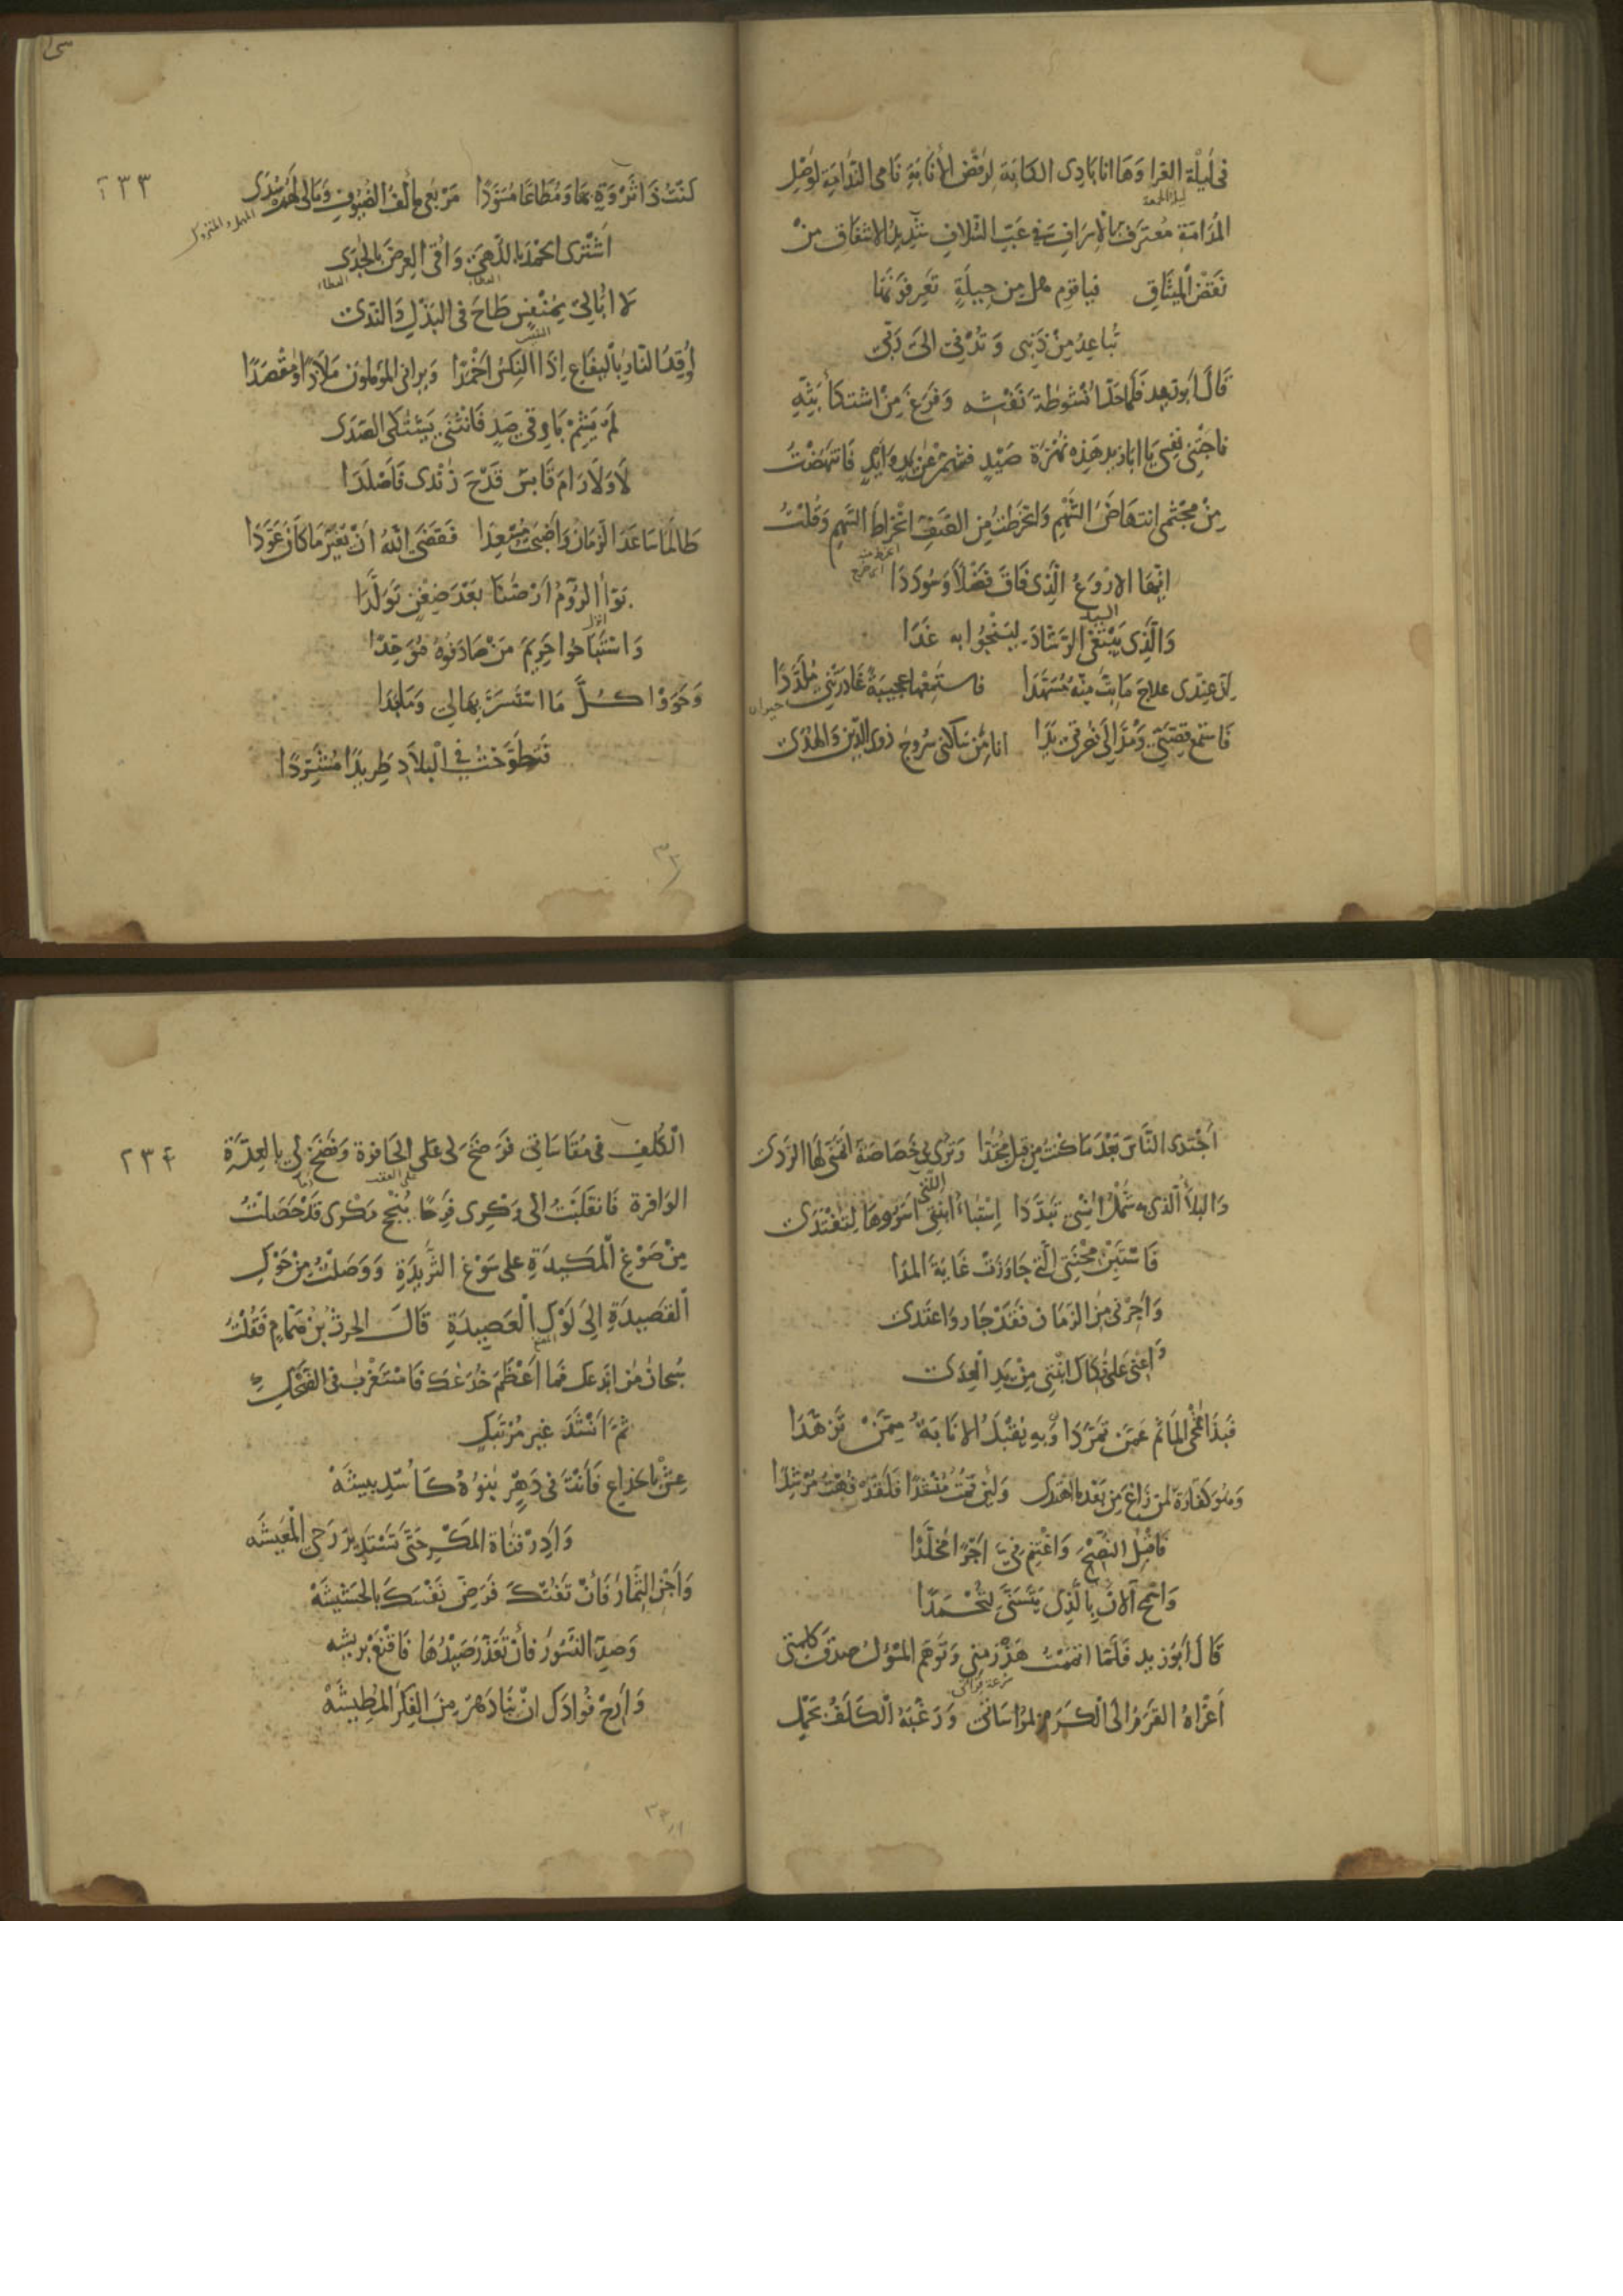 فى ليلة الغرا وَهَا انا بَادِى الكابَة لرَفضِ الأنَابَةِ نَامِى النَّدَامَةِ لوَصْلِ
ليلة الجمعة
المُدَامَةِ مُعتَرِف بالإسرَافِ فى عَبّ السُّلافِ شَدِيدُ الاشفاق مِنْ
نَقضِ المِيثَاقِ فيا قومِ هل مِن حِيلَةٍ تَعرِفونَهَا
تُبَاعِدُ مِنْ ذَنبِى وَتُدْنِى الىَ رَبّى
قَالَ ابُو زيد فَلَمَا حَلَّ انْشُوطَةَ نَفْثِه وَفَرَغَ مِنْ اشتكَاءِ بَثِّهِ
ناجَتْنى نَفسِى يَا ابَا زيد هَذِه نُهزَة صَيْدٍ فشَمِّرْ عَن يَدٍ وَايدٍ فَانتَهَضْتُ
مِنْ مَجثمى انتهَاضَ الشَّهْمِ وَانخَرَطتُ مِنَ الصَّفِّ انخِرَاطَ السَّهمِ وَقُلْتُ
ايُّهَا الارْوَعُ الَّذِى فَاقَ فَضْلاً وَسُودَدَا
السيد
وَالَّذِى يَبْتَغِى الرَّشَادَ ليَنجُوَا به غَدَا
اِنَّ عِنْدِى علاجَ مَا بِتَّ مِنْهُ مُسَهَّدَا فاستَمِعْهَا عجيبَةً غَادَرَتْنى مُلَدَّدَا
حيران
فَاستَمِع قِصَّتِى وَمَثَوَالى عُرفتى بَدَا انا مِن سَاكنى سَرُوجَ ذوِى الدِّين وَالهُدَى
٢٣٣
كُنْتُ ذَا ثَرْوَةٍ بهَا وَمُطَاعًا مُسَوَّدًا مَرْبَعِى مألَفُ الضُيُوفِ وَمَالى لَهُمْ سُدَى
المهمل والمتروك
اَشْتَرِى الحَمْدَ بِاللُّهَى وَاَقِى العِرضَ بالجَدَى
العطايا العطاء
لاَ ابَالِى بِمُنْفِسٍ طَاحَ فى البَذْلِ وَالنَّدَى
النفيس
اُوقِدُ النَّارَ بِاليفَاعِ اِذَا النِّكسُ اَخْمَدَا وَيرانى المؤملون مَلاَذًا وَمَقْصَدَا
لَم يَشِمْ بَارِقى صَدٍ فَانثَنَى يَشتَكى الصَّدَى
لاَ وَلاَ رَامَ قَابسٌ قَدْحَ زَنْدى فَأَصْلَدَا
طَالَمَا سَاعَدَ الزمَان وَأَصْبَحْتُ مُسْعِدَا فَقَضَى اللّٰهُ اَنْ يُغَيِّرَ مَا كَانَ عَوَّدَا
بَوَّأَ الرُّومُ اَرْضَنَا بَعْدَ ضِغْنٍ تَوَلَّدَا
انزل
وَاسْتَبَاحُوا حَرِيمَ مَنْ صَادَفوهُ مُوَحِّدَا
وَحَوَوْا كُلَّ مَا اسْتَسَرَّ بِهَا لِى وَمَا بَدَا
فَتَطَوَّحْتُ فِى الْبلاَدِ طَرِيدًا مُشَرَّدَا
اَجْتَدِى النَّاسَ بَعْدَ مَا كُنْتُ مِن قبلُ مُجْتَدَا وَتَرَى بى خَصَاصَة اتمَنَّى لَهَا الرَّدَى
وَالبلآءُ الَّذى به شَمْلُ اُنْسِى تَبَدَّدَا اِسْتِبَاءُ ابْنَتِى الَّتى اَسَرُوهَا لِتُفْتَدَى
فَاسْتَبِنْ مِحْنَتِى الَّتى جَاوَزَتْ غَايَةَ المدَا
وَاَجِرْنى مِنَ الزَمَان فَقَدْ جَارَ وَاعْتَدَى
وَاَعِنِّى عَلَى فَكَاكِ ابْنَتِى مِنْ يَدِ الْعِدَى
فَبِذَا تنمَحِى المآثمُ عَمَّنْ تَمَرَّدَا وَبِهِ يُقْبَلُ الانَابَةُ مِمَّنْ تَزَهَّدَا
وَهوَ كفارَة لمَن زَاغَ مِن بَعْدِ مَا اهْتَدَى وَلَئِن قُمْتُ مُنْشِدًا فَلَقَدْ فُهْتُ مُرْشِدَا
فَاقْبَلِ النُّصْحَ وَاغْتَنِم مِنِّى اَجْرًا مُخَلَّدَا
وَاسْمَحِ الآنَ بِالَّذِى يَتَسَنَّى لِتُحْمَدَا
قَالَ ابُوزيد فَلَمَّا اتممت هَذْرَمَتِى وَتَوَهَّمَ المسْؤلُ صِدقَ كَلِمَتِى
سُرعة قرائتى
اَغْرَاهُ القَرَمُ الى الْكَرَمِ بمُوَاسَاتى وَرَغَّبَهُ الْكَلَفُ بِحَمْلِ
٢٣٤
الْكُلَفِ فى مُقَاسَاتى فَرَضَخَ لى عَلى الحَافِرَة وَنَضَحَ لى بِالعِدَةِ
على النقد
الوَافِرة فَانْقَلَبْتُ الى وَكرِى فَرِحًا بِنُجْحِ مَكْرى قَدْ حَصَلْتُ
مِنْ صَوْغِ الْمَكِيدَةِ على سَوْغِ الثَّرِيدَةِ وَوَصَلْتُ مِنْ حَوْكِ
القَصِيدَةِ اِلَى لَوْكِ الْعَصِيدَةِ قَالَ الحرث بن همام فَقُلْتُ
سُبحان مَن اَبْدَعَكَ فَمَا اَعْظَمَ خُدَعَكَ فَاسْتَغْرَبَ فى الضَّحِكِ
ثمَّ اَنشَدَ غَير مُرْتَبَكِ
عِشْ بالخِدَاعِ فَاَنْتَ فى دَهْرٍ بَنُوهُ كَاُسْدِ بِيشَهْ
وَاَدِرْ قَنَاةَ المَكْرِ حَتّى تَسْتَدِيرَ رَحَى الْمَعِيشَه
وَاجْنِ الثِّمَارَ فَاِنْ تَفُتْكَ فَرَضِّ نَفْسَكَ بالحَشِيشَهْ
وَصِدِ النُّسُورَ فَاِنْ تَعَذَّرَ صَيْدُهَا فَاقْنَعْ بِرِيشِه
وَاَرِحْ فُوادَكَ اِنْ نَبَا دَهْرٌ مِنَ الفِكَرِ المُطِيشَهْ